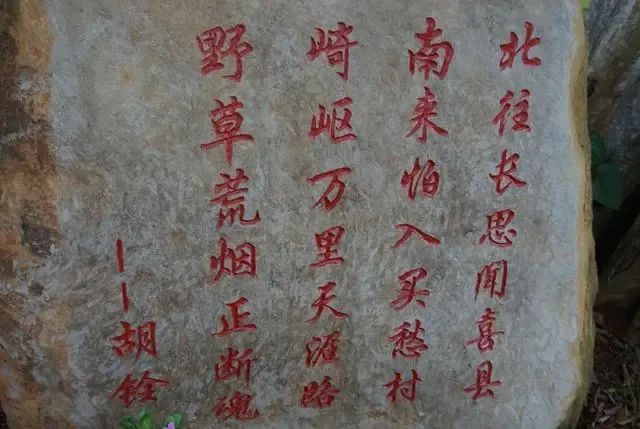 北往长思闻喜县
南来怕入买愁村
崎岖万里天涯路
野草荒烟正断魂
——胡铨